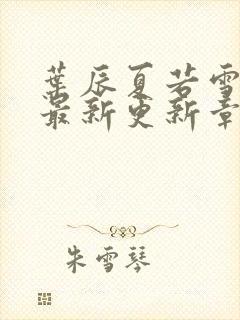 葉辰夏若雪
最新更新章
朱雪琴